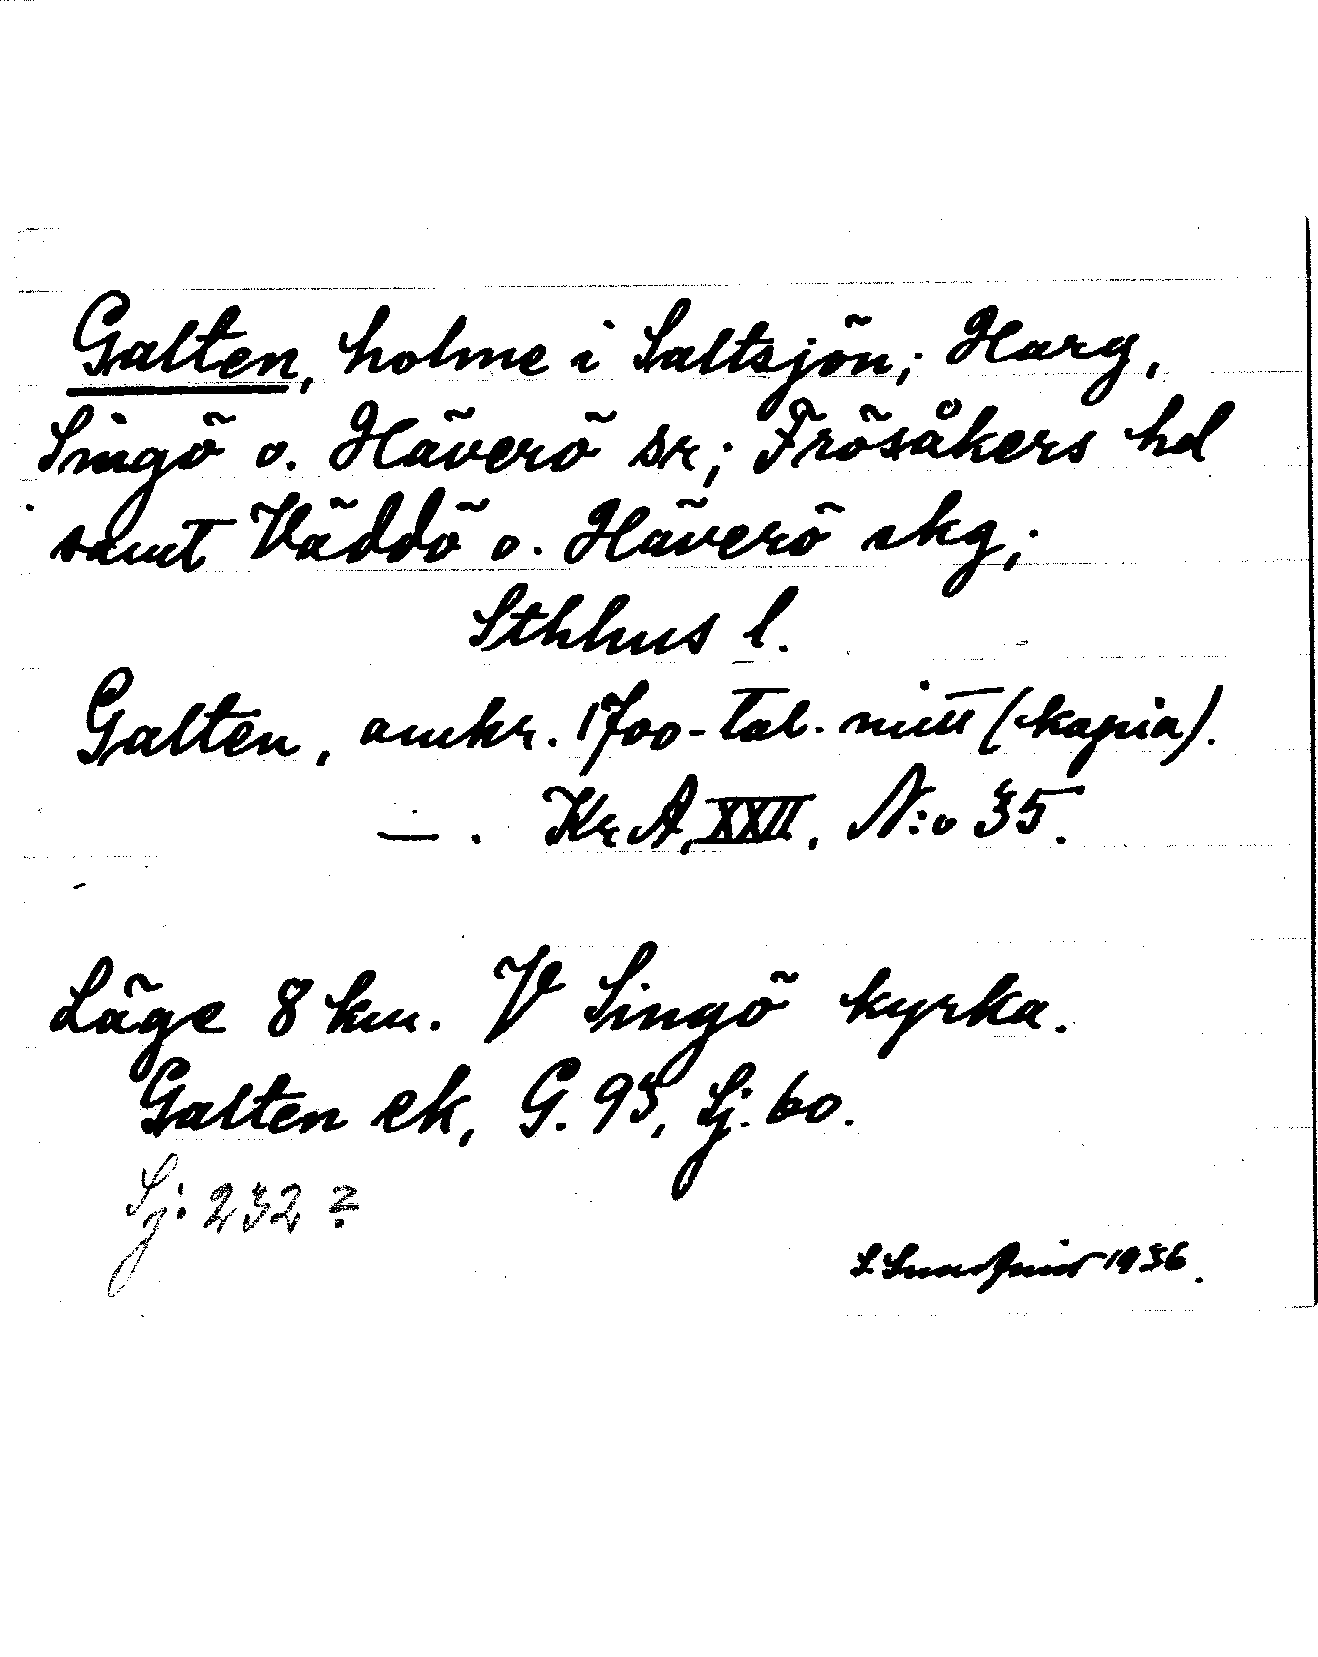 Galten, holme i Saltsjön; Harg,
Singö o. Häverö sr; Frösåkers hd
samt Väddö o. Häverö skg;
Sthlms l.
Galten, omkr. 1700-tal. mitt (kopia).
— . Kr A, XXII, N:o 35.
Läge 8 km. V Singö kyrka.
Galten ek, G. 95, Sj. 60.
Sj: 232?
S. 1936.